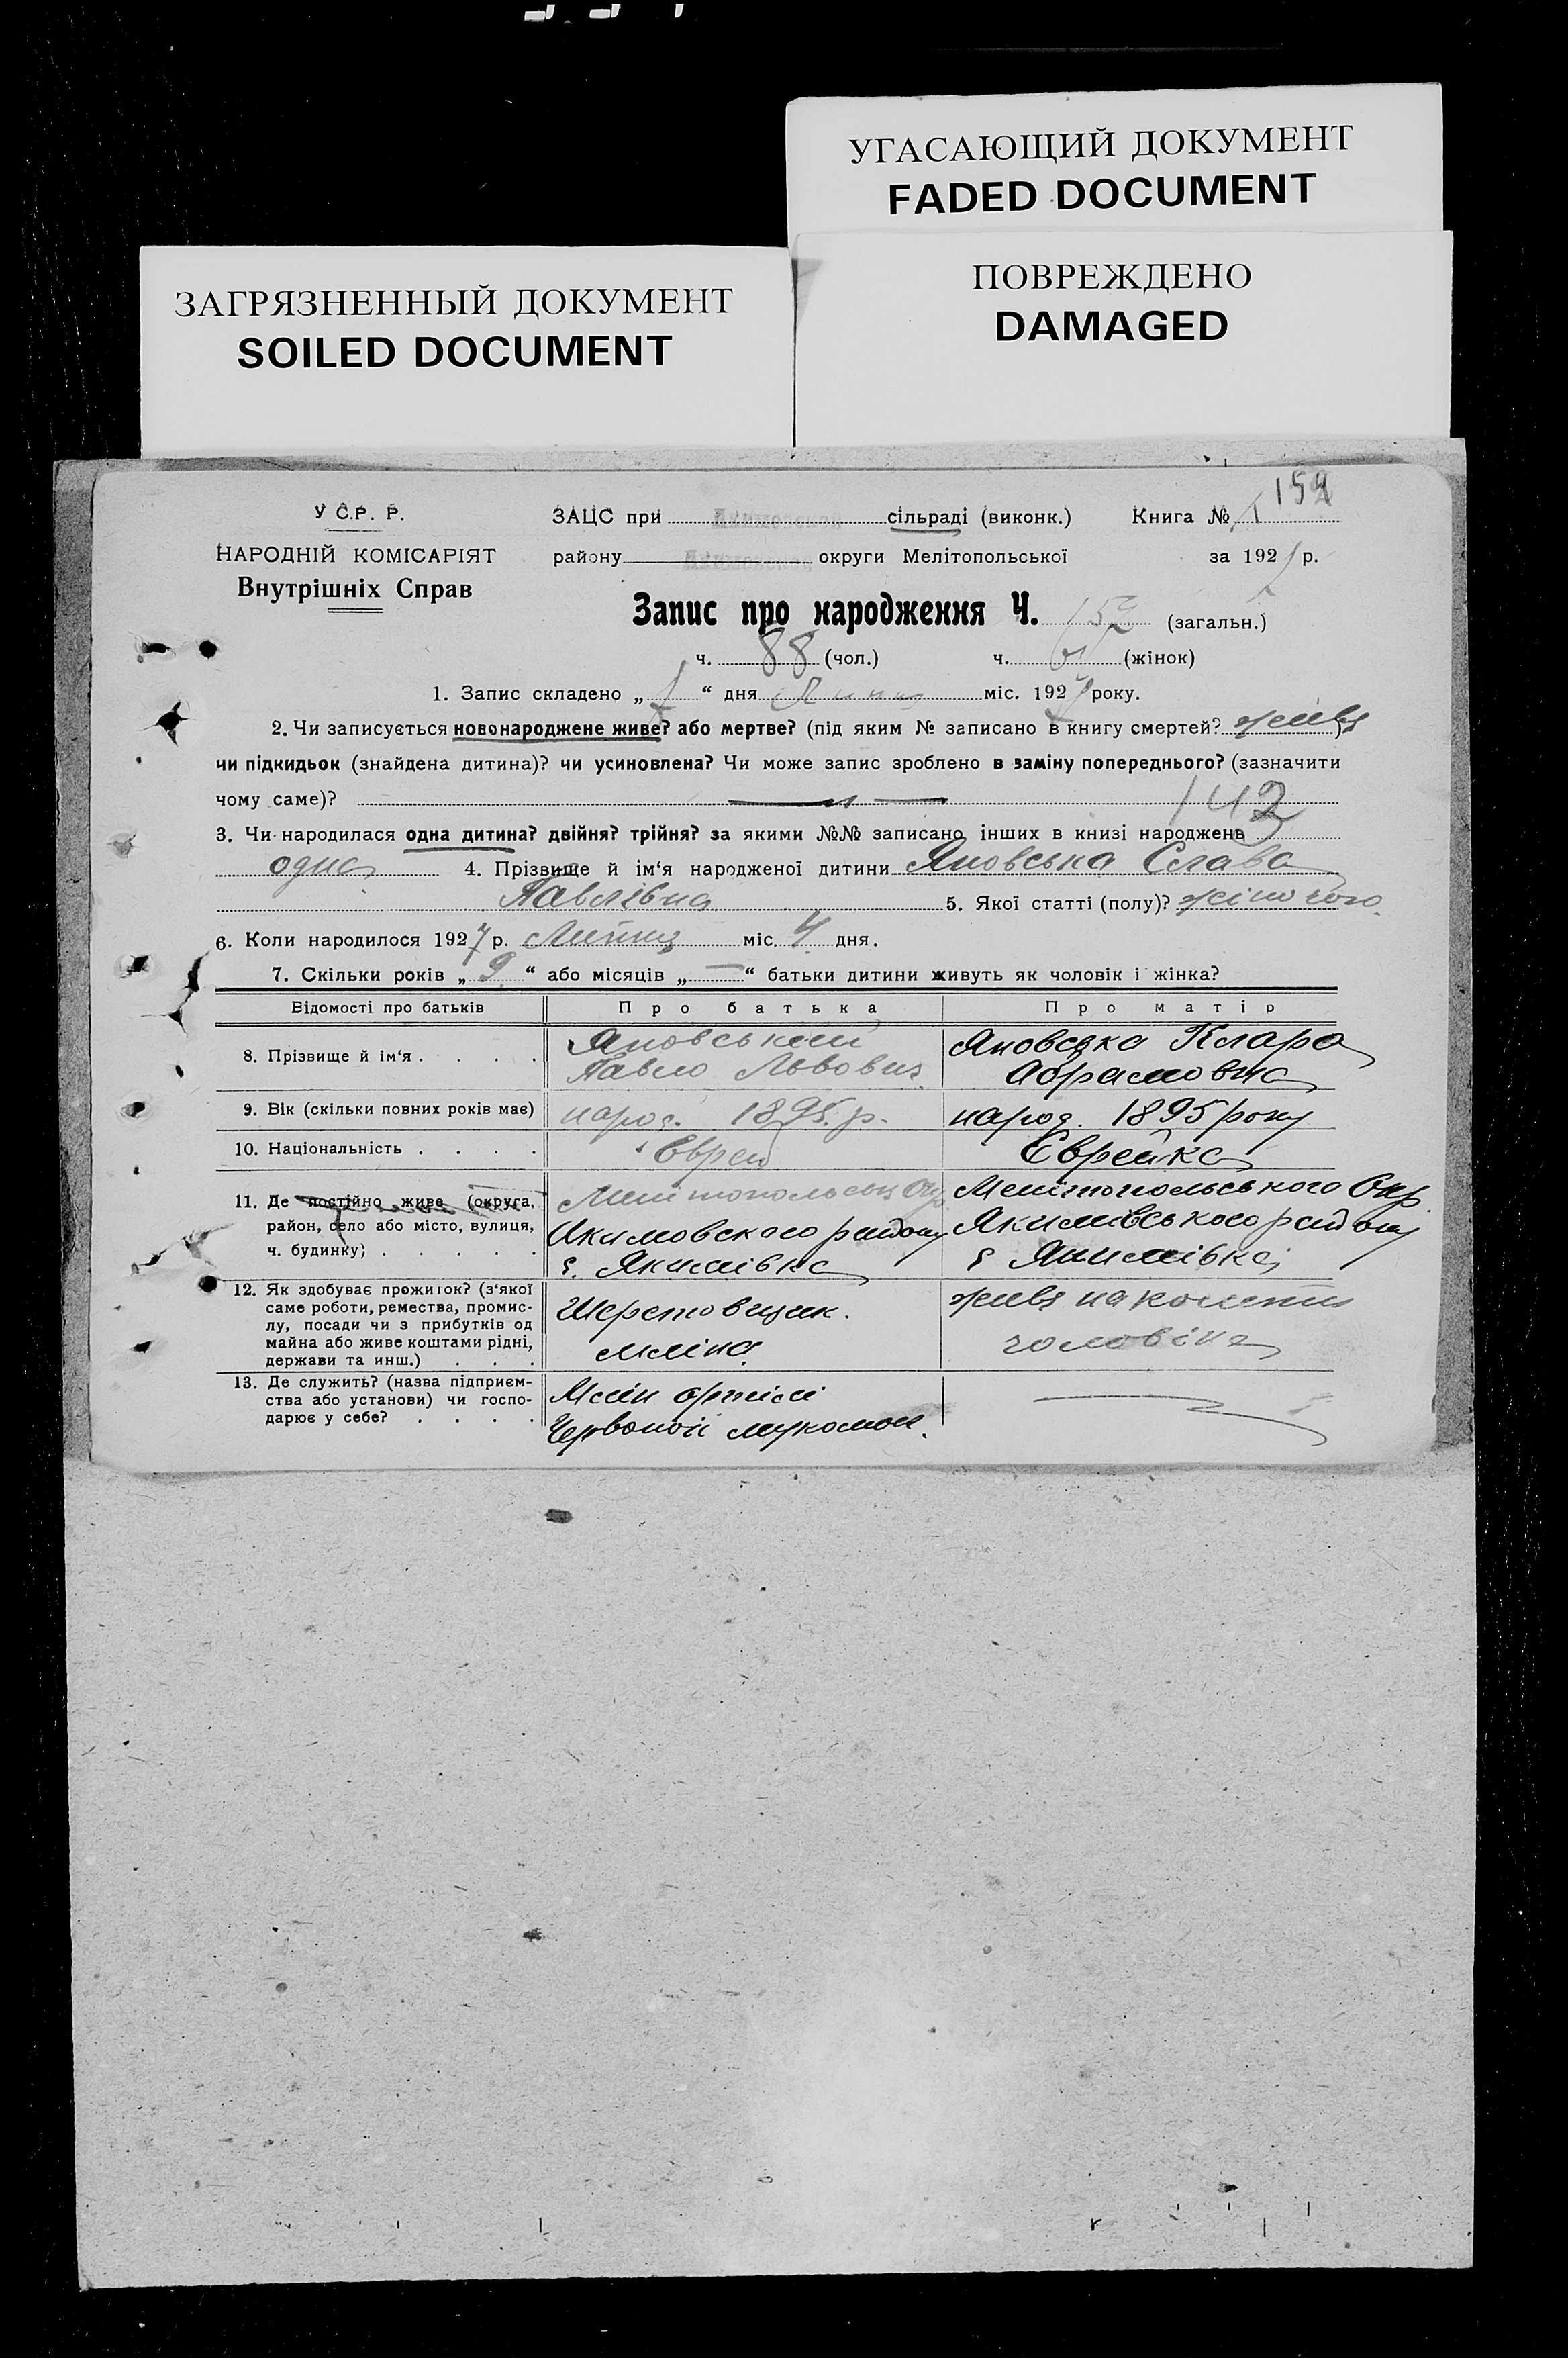 УГАСАЮЩИЙ ДОКУМЕНТ
FADED DOCUMENT
ЗАГРЯЗНЕННЫЙ ДОКУМЕНТ
SOILED DOCUMENT
ПОВРЕЖДЕНО
DAMAGED
У С.Р. Р.
НАРОДНІЙ КОМІСАРІЯТ
Внутрішніх Справ
ЗАЦС при сільраді (виконк.) Книга № 1
району округи Мелітопольської за 192 р.
Запис про народження Ч. 152 (загальн.)
ч. 88 (чол.) ч. (жінок)
1. Запис складено „ “ дня Липця міс. 1927 року.
2. Чи записується новонароджене живе? або мертве? (під яким № записано в книгу смертей? живе)
чи підкидьок (знайдена дитина)? чи усиновлена? Чи може запис зроблено в заміну попереднього? (зазначити
чому саме)? —„—
142
3. Чи народилася одна дитина? двійня? трійня? за якими №№ записано інших в книзі народжень
одна 4. Прізвище й ім‘я народженої дитини Яновська Слава
Павлівна 5. Якої статті (полу)? жіночого
6. Коли народилося 1927 р. Липця міс. 4 дня.
7. Скільки років „ 9 “ або місяців „ — “ батьки дитини живуть як чоловік і жінка?
Відомості про батьків Про батька Про матір
8. Прізвище й ім‘я . . . . Яновський Павло Львович Яновська Клара Абрамовна
9. Вік (скільки повних років має) народ. 1895 р. народ. 1895 року
10. Національність . . . . Еврей Еврейка
11. Де постійно живе (округа,
район, село або місто, вулиця,
ч. будинку) . . . . .
Мелітопольськ Окр
Якимовского району
с. Якимівка
Мелітопольського Окр.
Якимівського району
с Якимівка
12. Як здобуває прожиток? (з‘якої
саме роботи, ремества, промис-
лу, посади чи з прибутків од
майна або живе коштами рідні,
держави та инш.) . . .
млина
живе на кошти
чоловіка
13. Де служить? (назва підприєм-
ства або установи) чи госпо-
дарює у себе? . . . .
Млин артілі
Червоний мукомол.